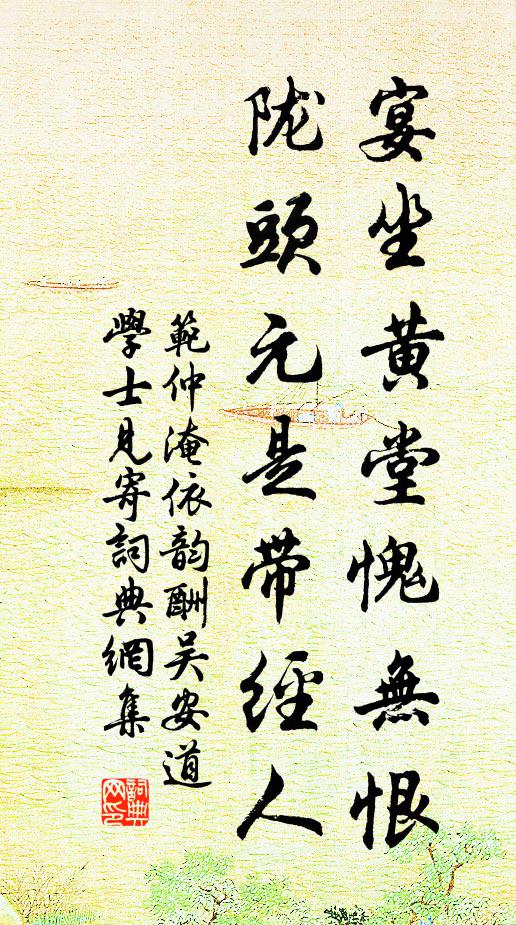 宴坐黄堂愧無恨
陇頭元是帶經人
範仲淹依韵酬吴安道
學士見寄詞典網集
詞典网印